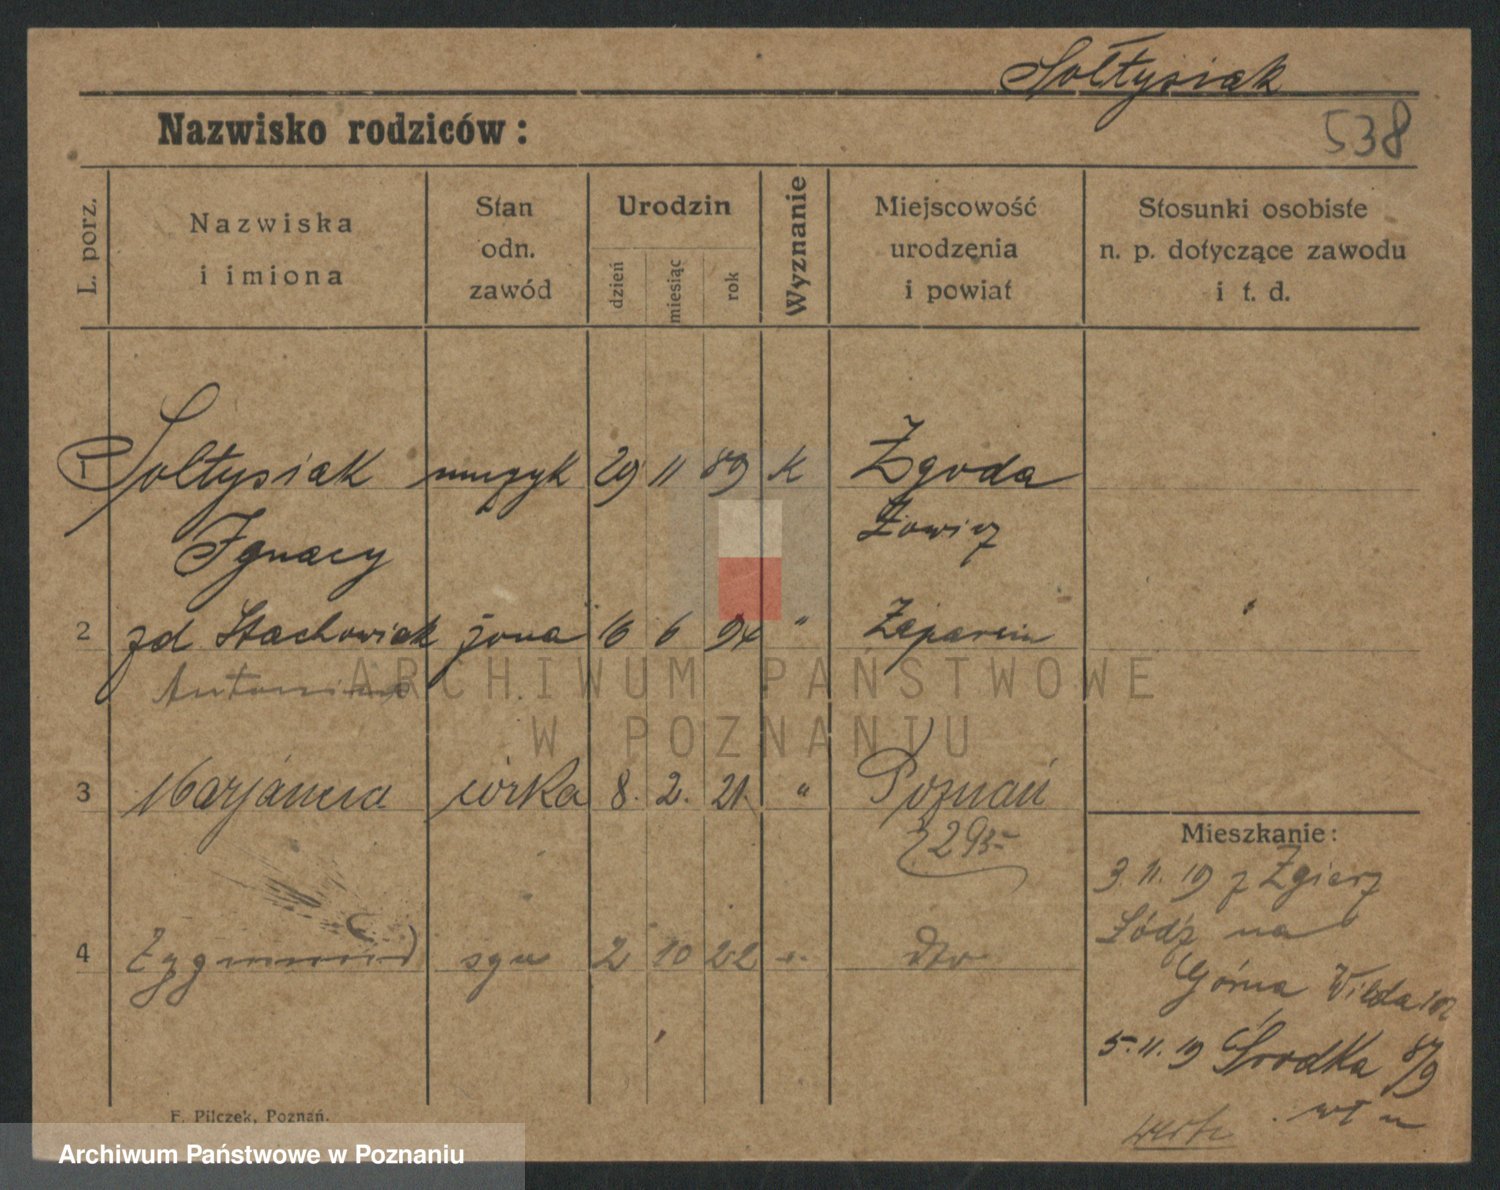 Sołtysiak
538
Nazwisko rodziców:
L. porz.
Nazwiska
i imiona
Stan
odn.
zawód
Urodzin
dzień
miesiąc
rok
Wyznanie
Miejscowość
urodzenia
i powiat
Stosunki osobiste
n. p. dotyczące zawodu
i t. d.
1 Sołtysiak muzyk 29 11 89 K Zgoda
Ignacy Łowicz
2 zd Stachowiak żona 16 6 94 "
Antonina
ARCHIWUM PAŃSTWOWE
W POZNANIU
3 Marjanna córka 8. 2. 21. " Poznań
Mieszkanie:
3. 11. 19 z Zgierz
Łódź na
Górna Wilda 102
4 Zygmund syn 2 10 22 " dto
5. 11. 19 Środka 8/9
F. Pilczek, Poznań.
Archiwum Państwowe w Poznaniu